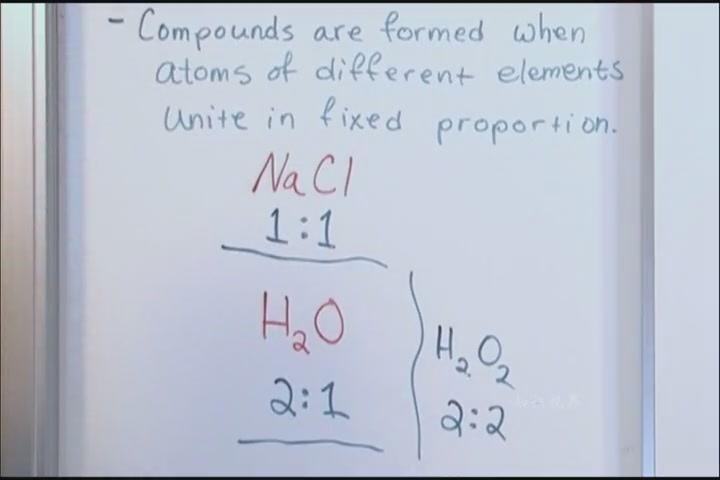 - Compounds are formed when
atoms of different elements
unite in fixed proportion.
NaCl
1:1
H₂O
2:1
H₂O₂
2:2